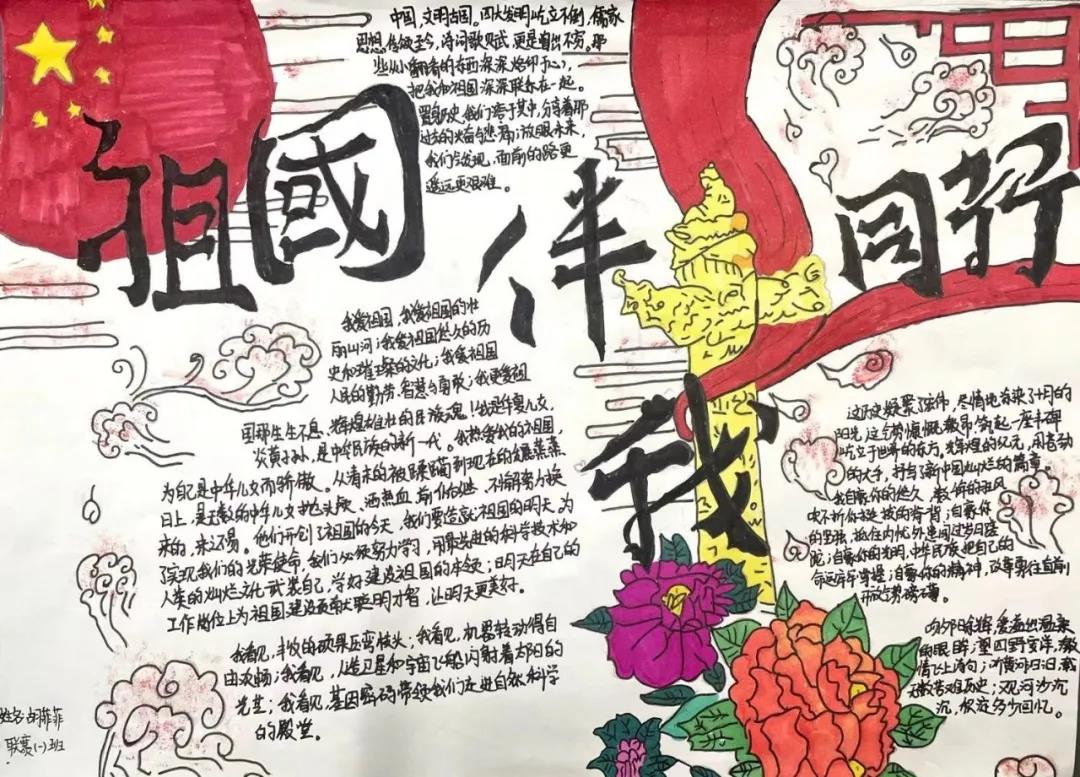 中国,文明古国。四大发明屹立不倒,儒家
思想传统至今,诗词歌赋,更是层出不穷。那
些从小翻看的东西深深烙印于心,
把我和祖国深深联系在一起。
历史,我们寄于其中,分享着那
过去的兴奋与悲痛;放眼未来,
我们会发现,面前的路更
遥远更艰难。
祖國伴我同行
我爱祖国,我爱祖国的壮
丽山河;我爱祖国悠久的历
史和璀璨的文化;我爱祖国
人民的勤劳、智慧与勇敢;我更爱祖
国那生生不息、辉煌雄壮的民族魂!我是华夏儿女,
炎黄子孙,是中华民族的新一代。我热爱我的祖国,
为自己是中华儿女而骄傲。从清末的被到现在的蒸蒸
日上,是无数的中华儿女抛头颅、洒热血、前仆后继、不懈努力换
来的,来之不易。他们开创了祖国的今天,我们要造就祖国的明天,为
了实现我们的光荣使命,我们必须努力学习,用最先进的科学技术和
人类的灿烂文化武装自己,学好建设祖国的本领;明天在自己的
工作岗位上为祖国建设贡献聪明才智,让明天更美好。
我看见,丰收的硕果压弯枝头;我看见,机器转动得自
由欢畅;我看见,人造卫星和宇宙飞船闪射着太阳的
光芒;我看见,基因密码带领我们走进自然科学
的殿堂。
这历史凝聚了宏伟,尽情地演染了十月的
阳光,这气势慷慨激昂,筑起一座丰碑
屹立于世界的东方。光辉的纪元,用苍劲
的大手,抒写了新中国灿烂的篇章。
我自豪你的悠久,数千年的狂风
吹不折你挺拔的脊背;自豪你
的坚强,抵住内忧外患闯过岁月蹉
跎;自豪你的光明,中华民族把自己的
命运牢牢掌握;自豪你的精神,改革勇往直前
开放气势磅礴。
吻夕阳余辉,爱意溢出温柔
的眼眸;望四野宽洋,激
情飞上诗句;叫黄河日泪,载
无数苦难历史;观河沙沉
沉,积淀多少回忆。
姓名:胡
联赛(一)班